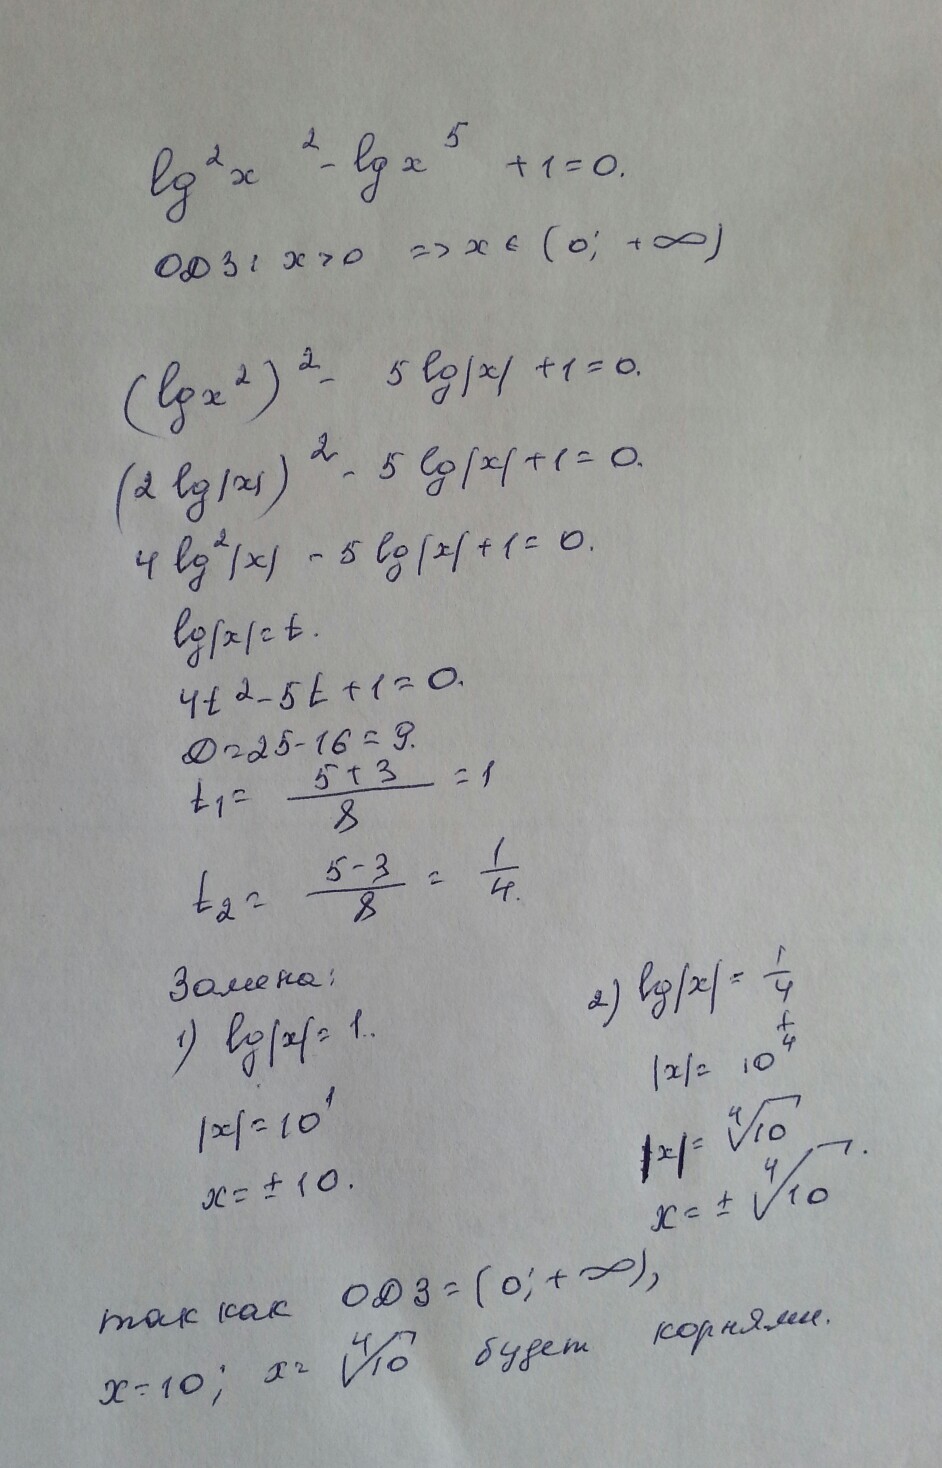 lg²x² - lgx⁵ + 1 = 0.
ОДЗ: x > 0 => x ∈ (0; +∞)
(lgx²)² - 5 lg|x| + 1 = 0.
(2 lg|x|)² - 5 lg|x| + 1 = 0.
4 lg²|x| - 5 lg|x| + 1 = 0.
lg|x| = t.
4t² - 5t + 1 = 0.
D = 25 - 16 = 9.
t₁ = (5 + 3)/8 = 1
t₂ = (5 - 3)/8 = 1/4.
Замена:
1) lg|x| = 1.
|x| = 10¹
x = ± 10.
2) lg|x| = 1/4
|x| = 10^(1/4)
|x| = ⁴√10
x = ± ⁴√10.
так как ОДЗ = (0; + ∞),
x = 10; x = ⁴√10 будет корнями.